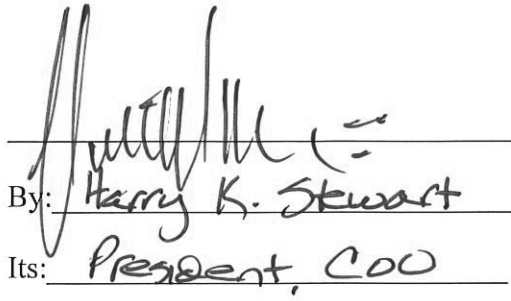 By: Harry K. Stewart
Its: President, COO